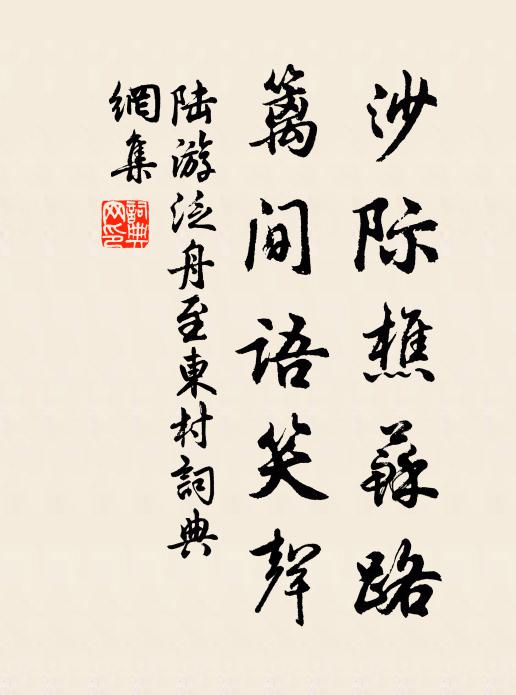 沙际樵蘇路
籬间语笑聲
陆游泛舟至東村詞典
網集
詞典
网印